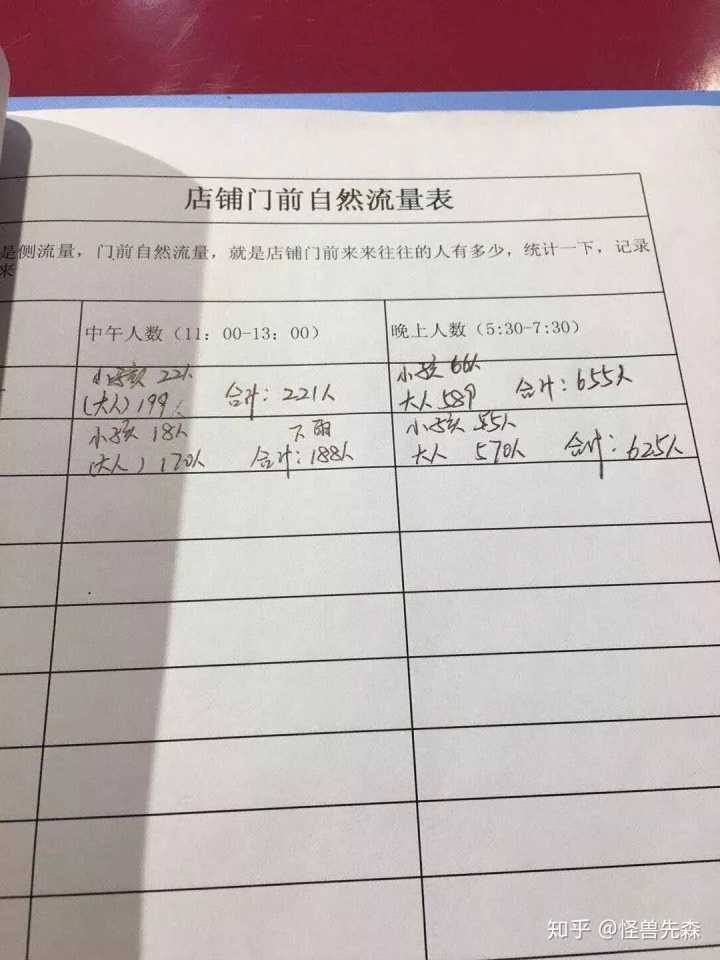 店铺门前自然流量表
是侧流量，门前自然流量，就是店铺门前来来往往的人有多少，统计一下，记录
来
中午人数（11：00-13：00）
晚上人数（5:30-7:30）
小孩 22人
(大人) 199人 合计：221人
小孩 66人
大人 589 合计：655人
小孩 18人 下雨
(大人) 170人 合计：188人
小孩 55人
大人 570人 合计：625人
知乎 @怪兽先森